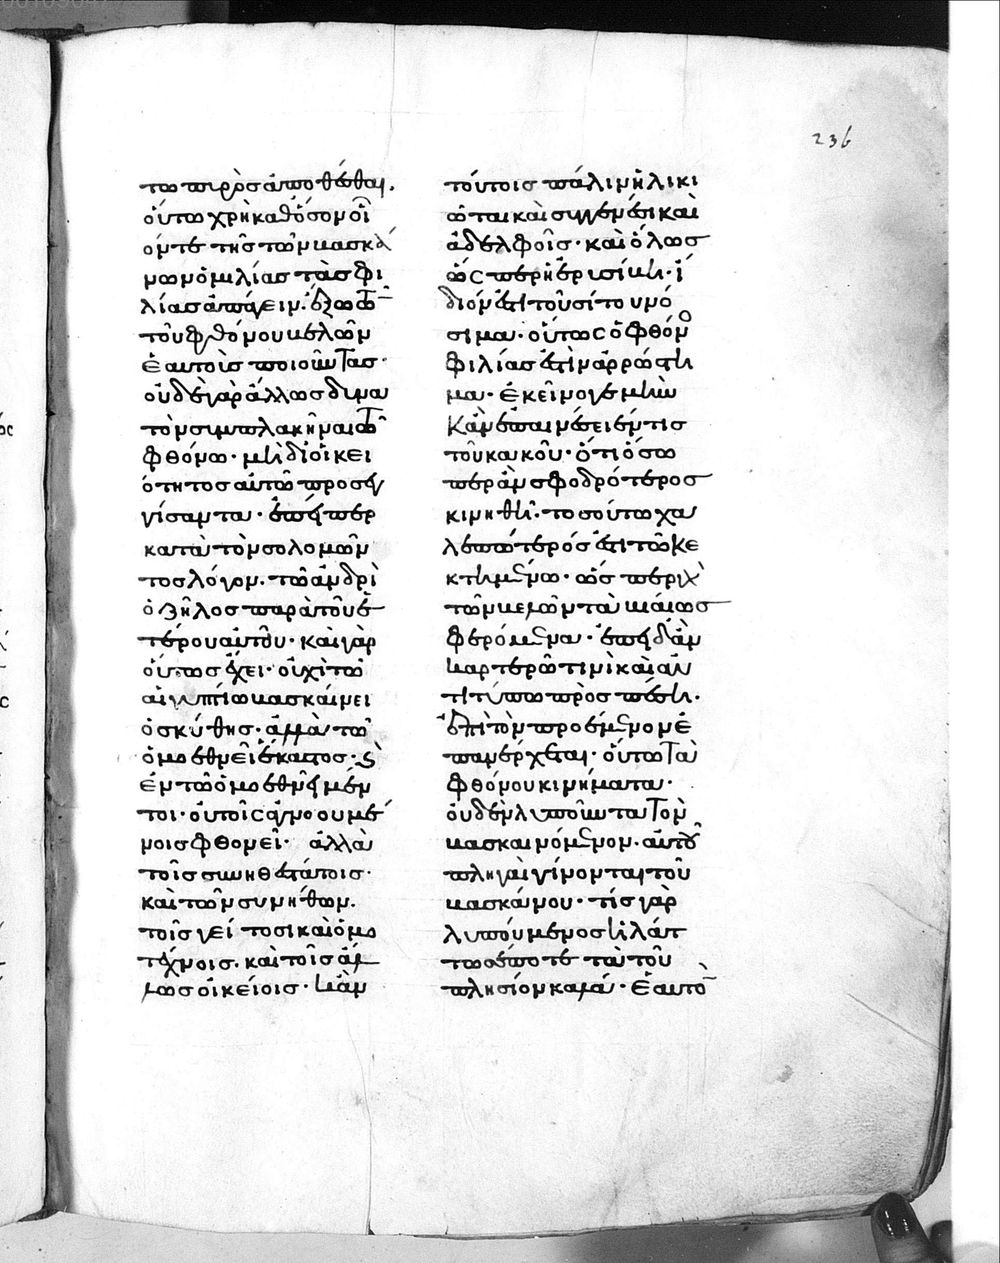 236
τω πυρὸς ἀποθέσθαι.
οὕτω χρὴ καθόσον οἷ
όν τε τῆς τῶν βασκά
νων ὁμιλίας τὰς φι
λίας ἀπάγειν. ἔξω τῶν
τοῦ φθόνου βελῶν
ἑαυτοὺς ποιοῦντας·
οὐδὲ γὰρ ἄλλως δυνα
τὸν συμπλακῆναι τῶ
φθόνω· μὴ δι' οἰκει
ότητος αὐτῶ προσεγ
γίσαντα· ἐπείπερ
κατὰ τὸν σολομῶν
τος λόγον. τῶ ἀνδρὶ
ὁ ζῆλος παρὰ τοῦ ἑ
τέρου αὐτοῦ· καὶ γὰρ
οὕτως ἔχει· οὐχὶ τῶ
αἰγυπτίω βασκαίνει
ὁ σκύθης· ἀλλὰ τῶ
ὁμοεθνεῖ ἕκαστος· καὶ
ἐν τῶ ὁμοεθνεῖ μέν
τοι· οὐ τοῖς ἀγνοουμέ
νοις φθονεῖ· ἀλλὰ
τοῖς συνηθεστάτοις·
καὶ τῶν συνήθων.
τοῖς γείτοσι καὶ ὁμο
τέχνοις. καὶ τοῖς ἄλ
λως οἰκείοις· κἀν
τούτοις πάλιν ἡλικι
ώταις καὶ συγγενέσι καὶ
ἀδελφοῖς· καὶ ὅλως
ὡς περ ἡ ἐρισίβη· ἴ
διόν ἐστι τοῦ σίτου νό
σημα· οὕτως ὁ φθόνος
φιλίας ἐστὶν ἀρρώστη
μα· ἐκεῖνο γε μὴν
κἂν ἐπαινέσειέν τις
τοῦ κακοῦ· ὅτι ὅσω
περ ἂν σφοδρότερος
κινηθῆ· τοσούτω χα
λεπώτερός ἐστι τῶ κε
κτημένω· ὡς περ γὰρ
τῶν βελῶν τὰ βιαίως
φερόμενα· ἐπειδὰν
καρτερῶ τινὶ καὶ ἀν
τιτύπω πρὸς πέση·
ἐπὶ τὸν προέμενον ἐ
πανέρχεται· οὕτω τὰ
φθόνου κινήματα·
οὐδὲν λυποῦντα τὸν
βασκαινόμενον. αὐτοῦ
πληγαὶ γίνονται τοῦ
βασκάνου· τίς γὰρ
λυπούμενος ἠλάτ
τωσέ ποτε τὰ τοῦ
πλησίον καλά· ἑαυτὸν